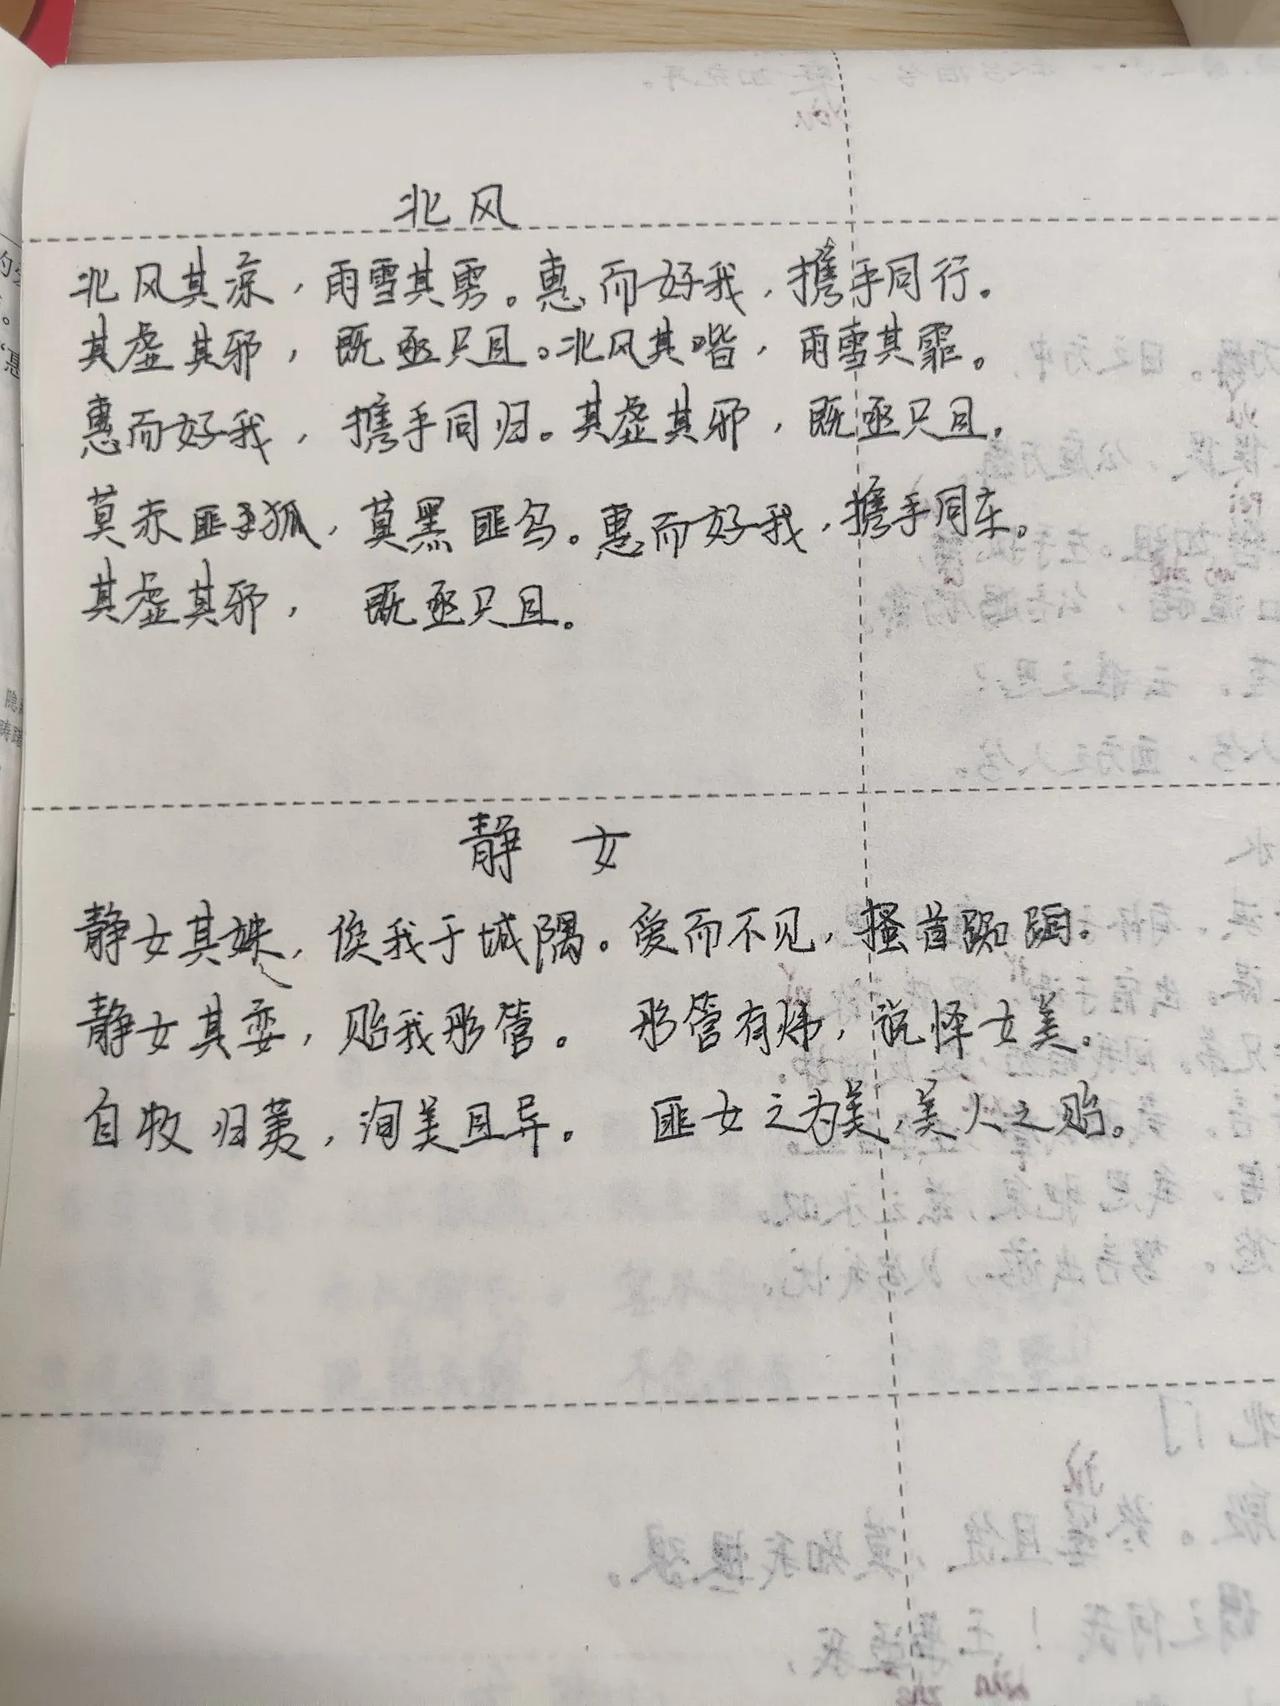 北风
北风其凉，雨雪其雱。惠而好我，携手同行。
其虚其邪，既亟只且。北风其喈，雨雪其霏。
惠而好我，携手同归。其虚其邪，既亟只且。
莫赤匪狐，莫黑匪乌。惠而好我，携手同车。
其虚其邪，既亟只且。
静女
静女其姝，俟我于城隅。爱而不见，搔首踟蹰。
静女其娈，贻我彤管。彤管有炜，说怿女美。
自牧归荑，洵美且异。匪女之为美，美人之贻。